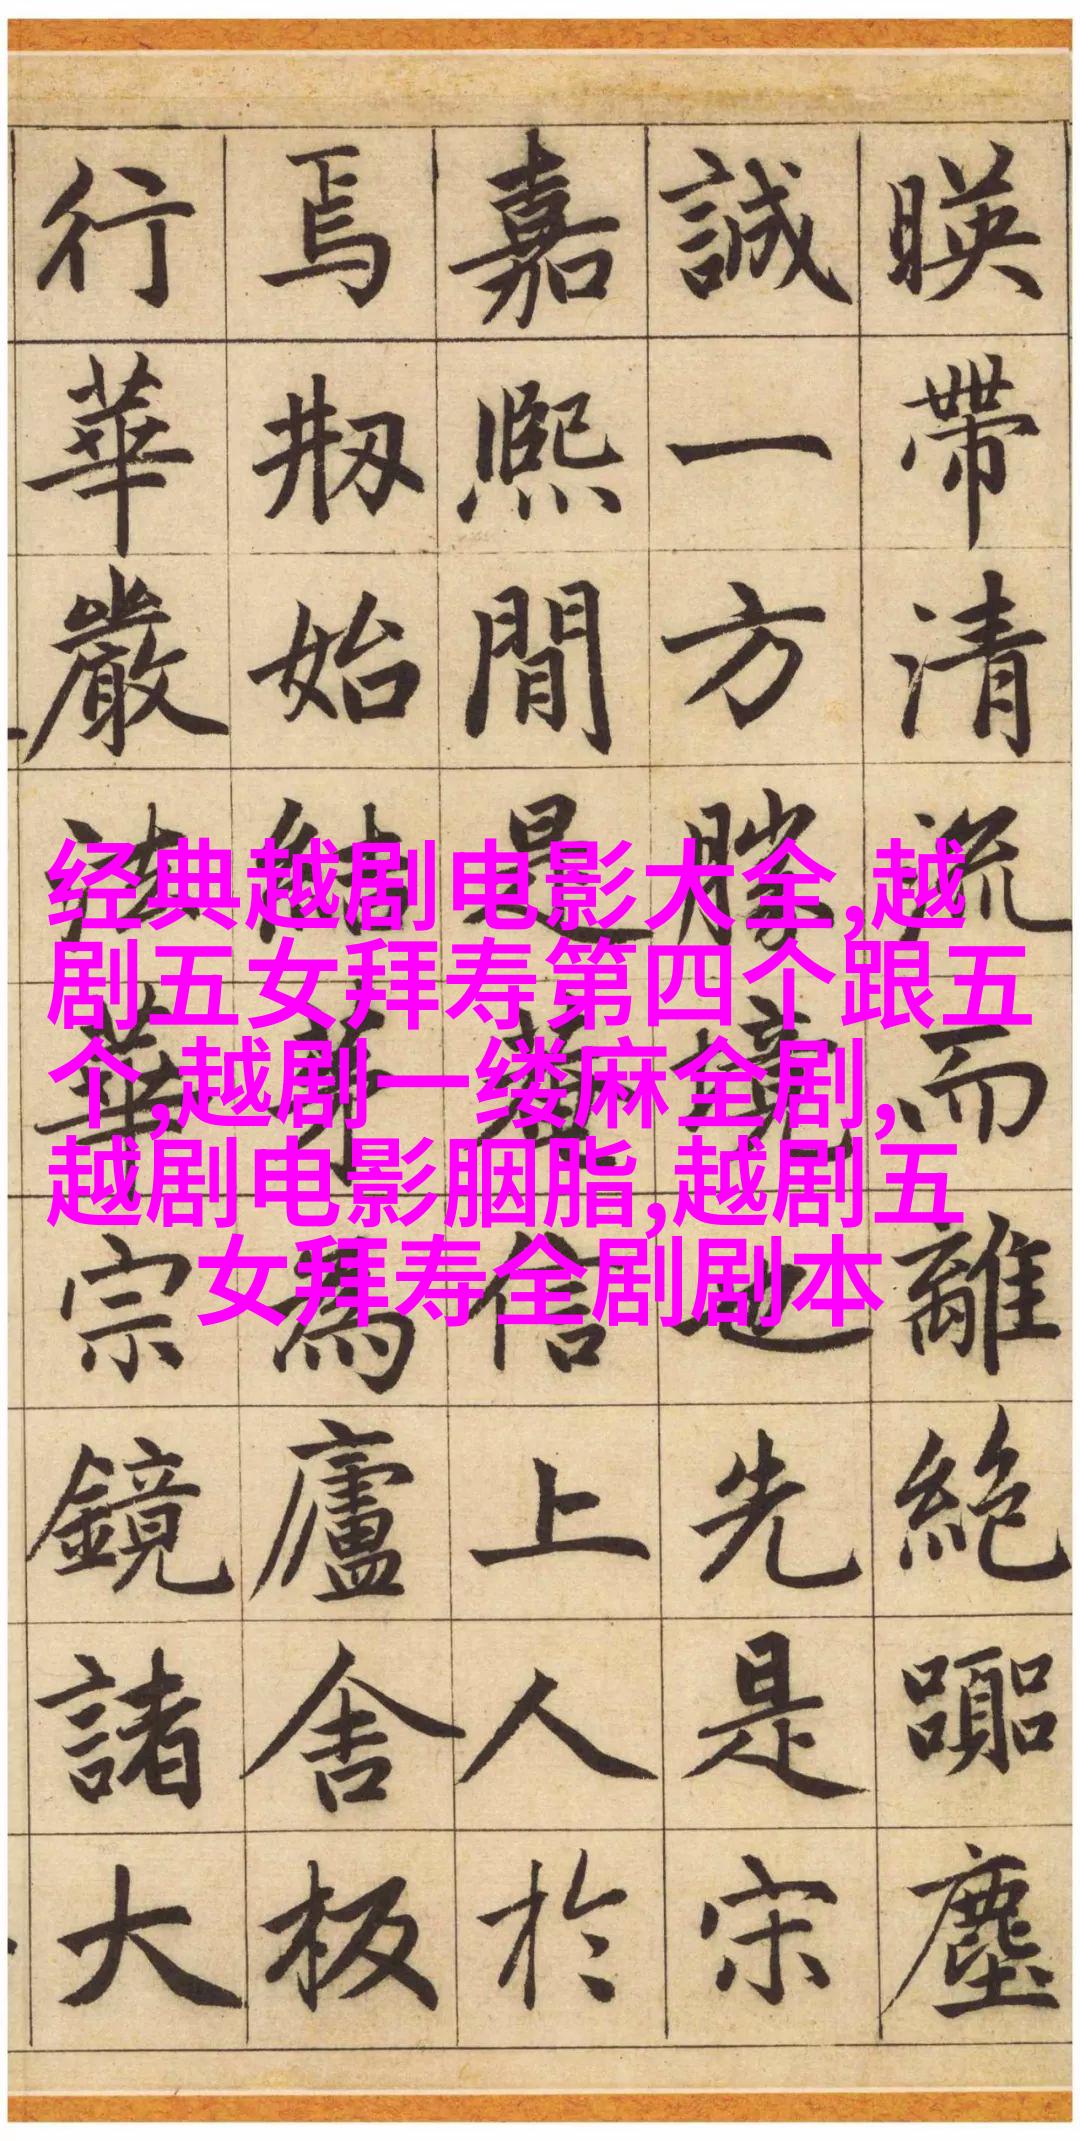 暎帶清流而離絶囂塵
誠一方勝境也先是宋
嘉熙間是菴信上人於
焉剏始結茅為廬舍板
行華嚴法華宗鏡諸大
经典越剧电影大全,越
剧五女拜寿第四个跟五
个,越剧一缕麻全剧,
越剧电影胭脂,越剧五
女拜寿全剧剧本